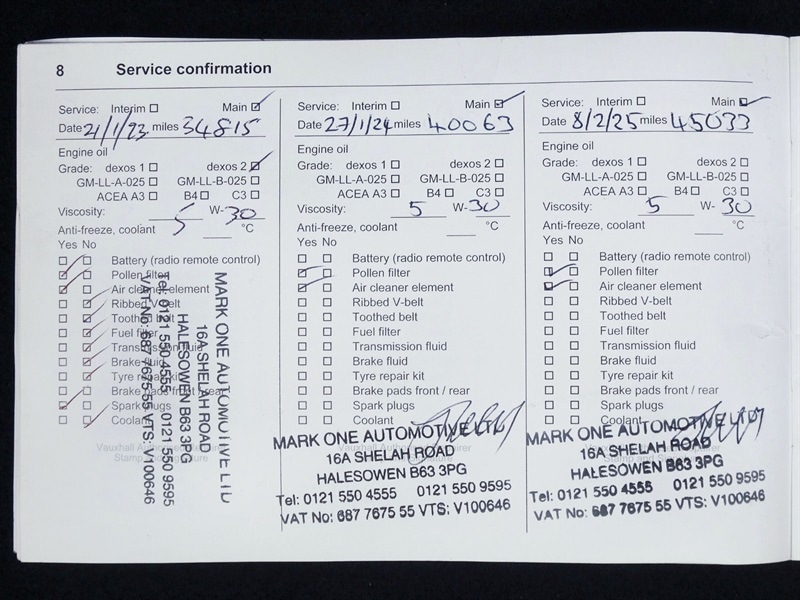 8 Service confirmation
Service: Interim Main
Date 21/1/23 miles 34815
Engine oil
Grade: dexos 1 dexos 2
GM-LL-A-025 GM-LL-B-025
ACEA A3 B4 C3
Viscosity: 5 W-30
Anti-freeze, coolant 5 °C
Yes No
Battery (radio remote control)
Pollen filter
Air cleaner element
Ribbed V-belt
Toothed belt
Fuel filter
Transmission fluid
Brake fluid
Tyre repair kit
Brake pads front / rear
Spark plugs
Coolant
MARK ONE AUTOMOTIVE LTD
16A SHELAH ROAD
HALESOWEN B63 3PG
Tel: 0121 550 4555 0121 550 9595
VAT No: 687 7675 55 VTS: V100646
Service: Interim Main
Date 27/1/24 miles 40063
Engine oil
Grade: dexos 1 dexos 2
GM-LL-A-025 GM-LL-B-025
ACEA A3 B4 C3
Viscosity: 5 W-30
Anti-freeze, coolant °C
Yes No
Battery (radio remote control)
Pollen filter
Air cleaner element
Ribbed V-belt
Toothed belt
Fuel filter
Transmission fluid
Brake fluid
Tyre repair kit
Brake pads front / rear
Spark plugs
Coolant
MARK ONE AUTOMOTIVE LTD
16A SHELAH ROAD
HALESOWEN B63 3PG
Tel: 0121 550 4555 0121 550 9595
VAT No: 687 7675 55 VTS: V100646
Service: Interim Main
Date 8/2/25 miles 45033
Engine oil
Grade: dexos 1 dexos 2
GM-LL-A-025 GM-LL-B-025
ACEA A3 B4 C3
Viscosity: 5 W-30
Anti-freeze, coolant °C
Yes No
Battery (radio remote control)
Pollen filter
Air cleaner element
Ribbed V-belt
Toothed belt
Fuel filter
Transmission fluid
Brake fluid
Tyre repair kit
Brake pads front / rear
Spark plugs
Coolant
MARK ONE AUTOMOTIVE LTD
16A SHELAH ROAD
HALESOWEN B63 3PG
Tel: 0121 550 4555 0121 550 9595
VAT No: 687 7675 55 VTS: V100646